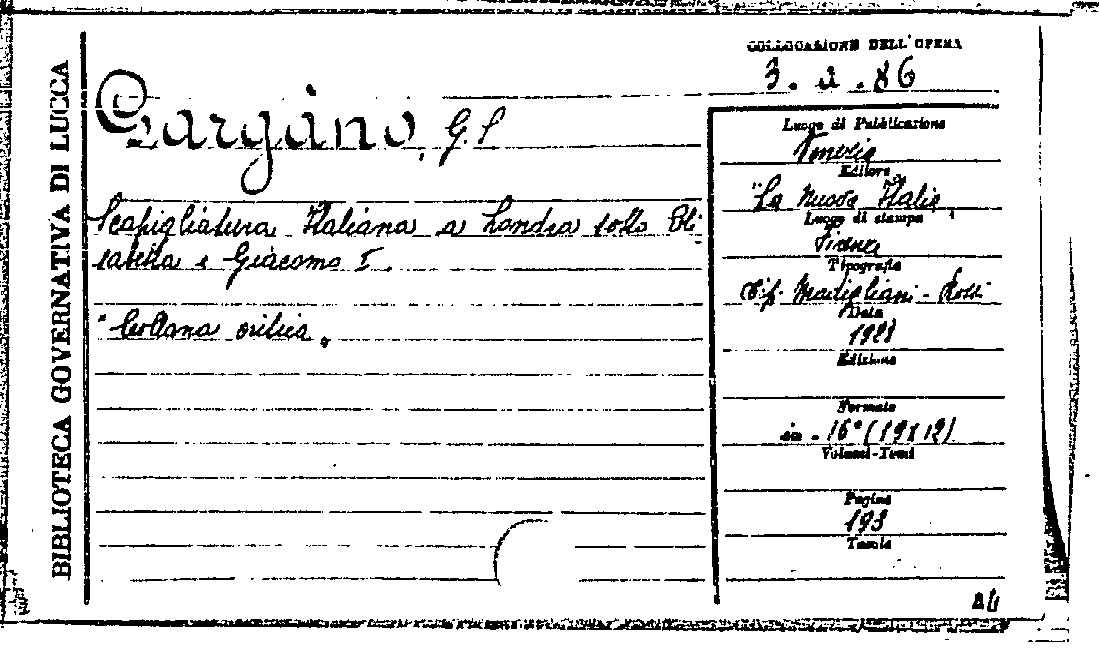 BIBLIOTECA GOVERNATIVA DI LUCCA
COLLOCAZIONE DELL'OPERA
Gargàno, G. S
Scapigliatura Italiana a Londra sotto Eli-
sabetta e Giacomo I.
"Collana critica"
Luogo di Pubblicazione
Venezia
Editore
"La Nuova Italia"
Luogo di stampa
Firenze
Tipografia
Tip. Modigliani-Rossi
Data
1928
Edizione
Formato
in-16° (19x12)
Volumi-Tomi
Pagine
193
Tavole